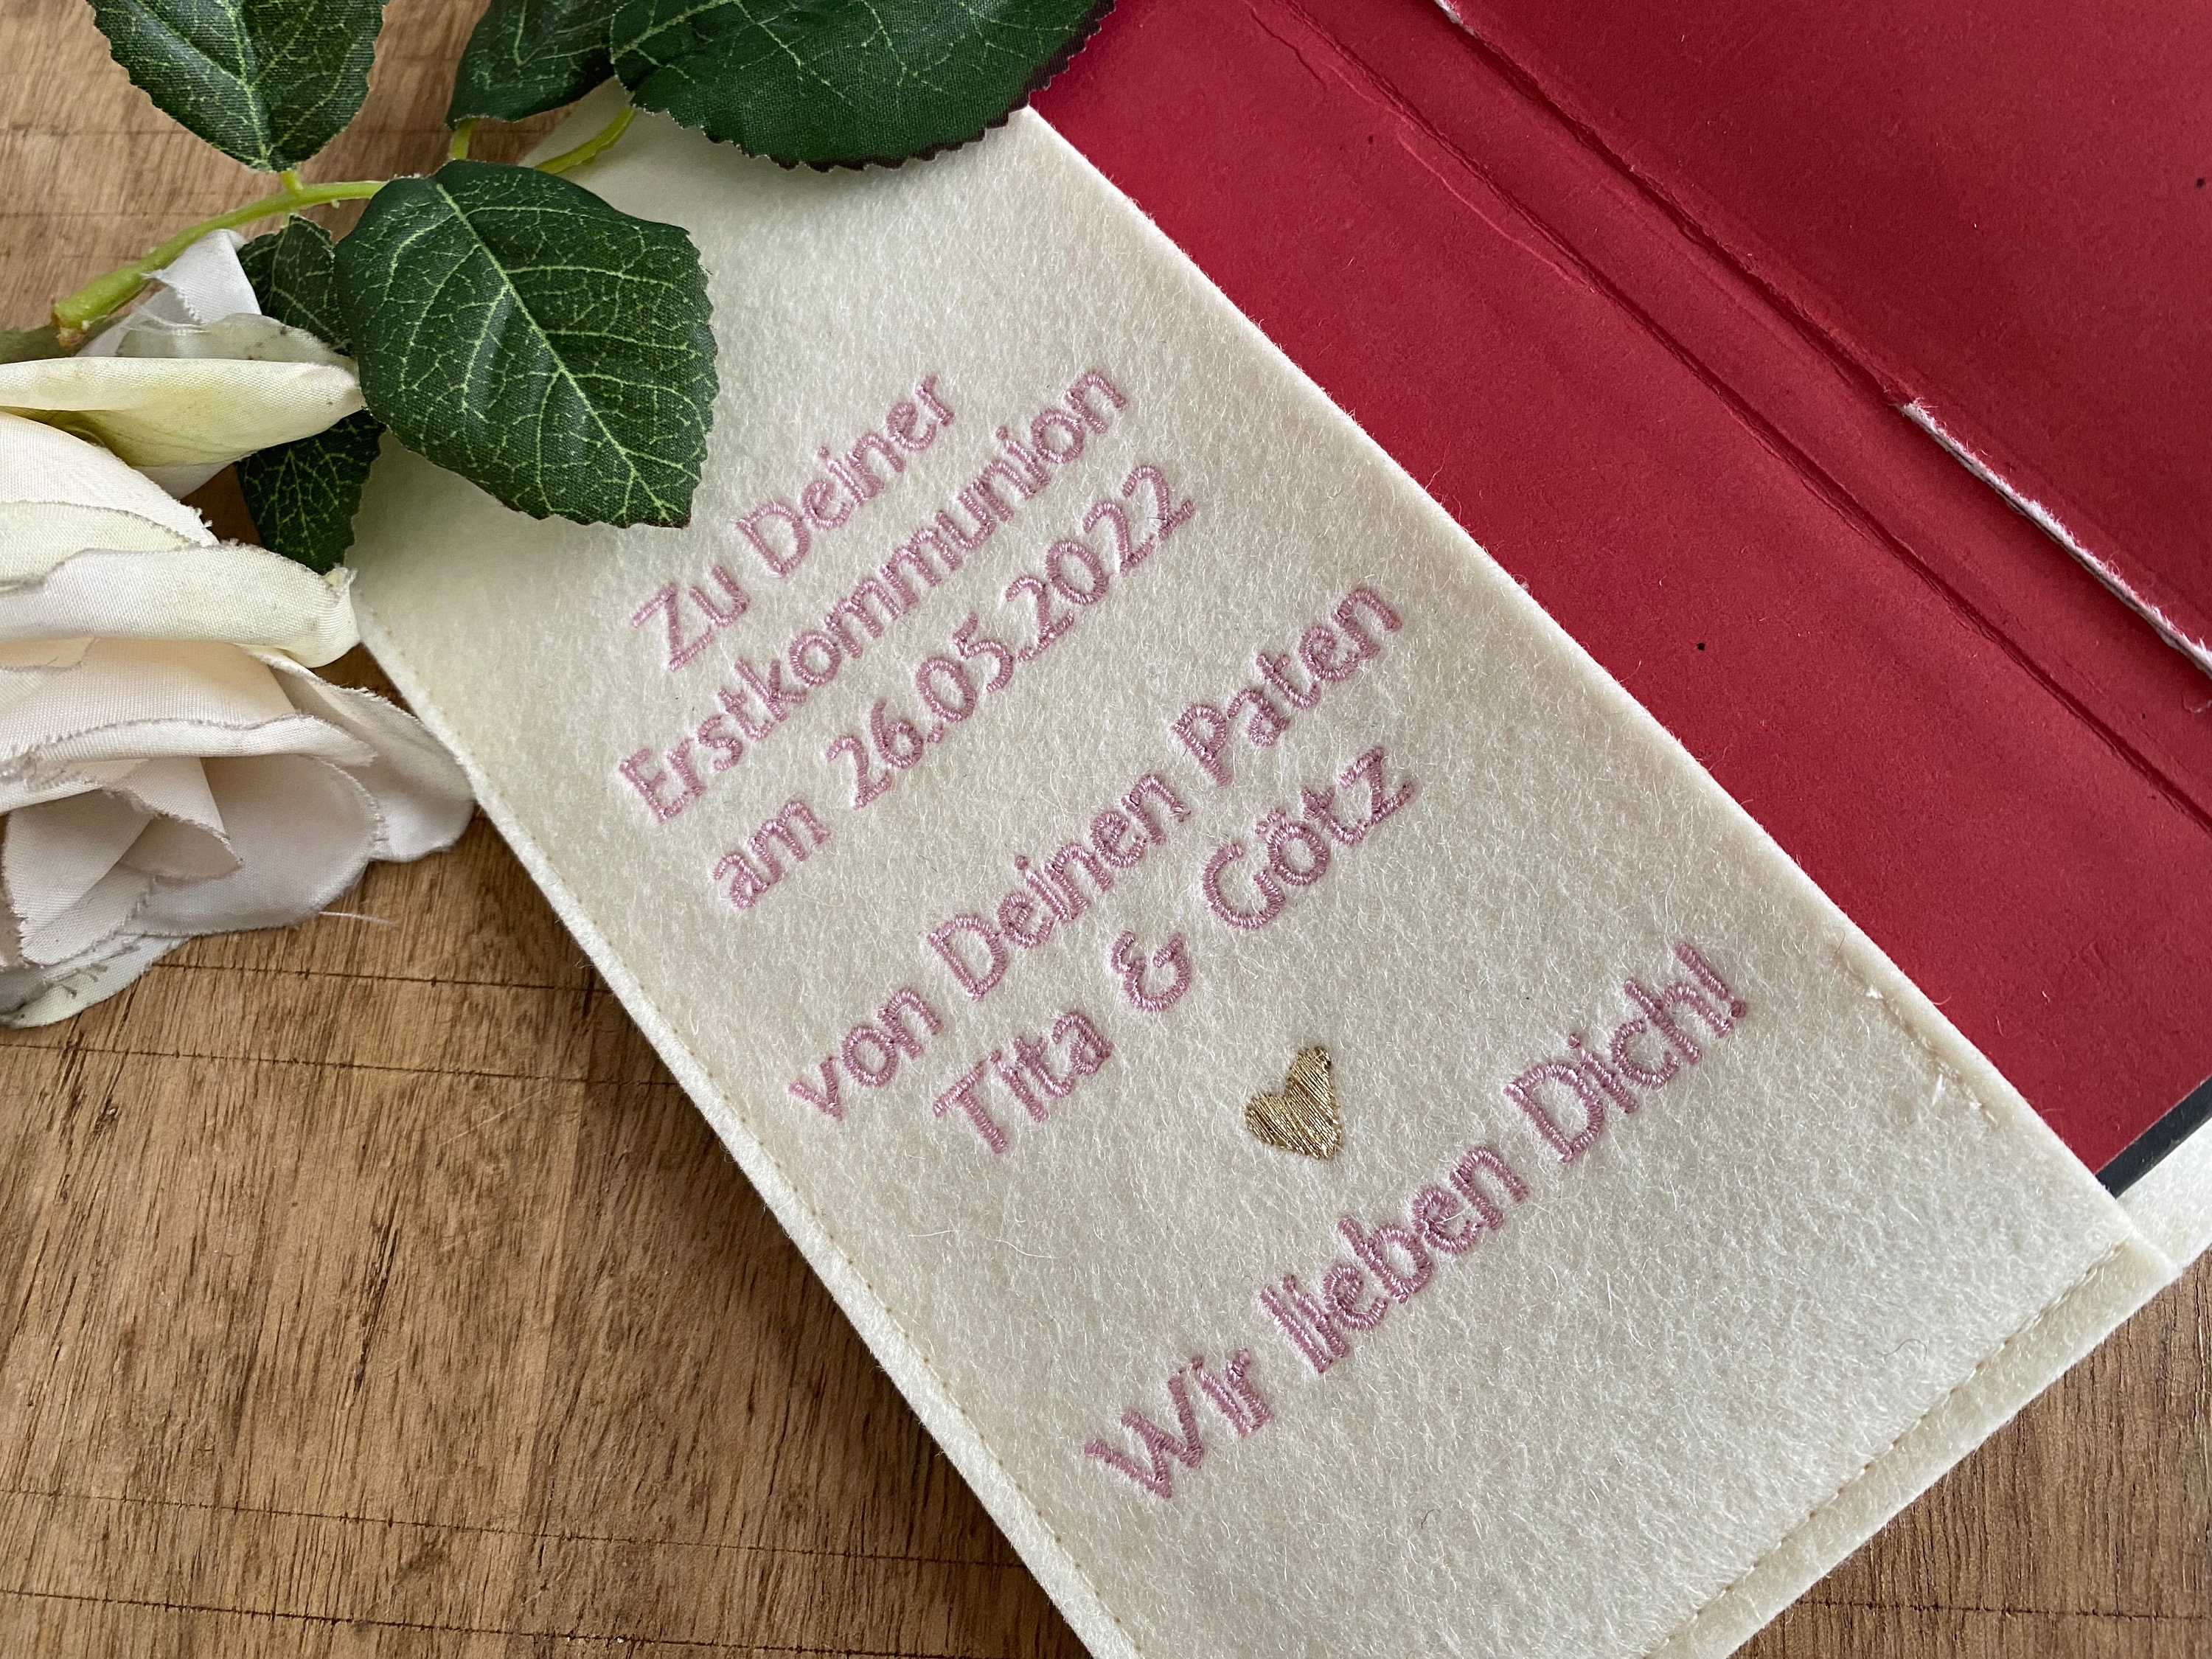 Zu Deiner
Erstkommunion
am 26.05.2022
von Deinen Paten
Tita & Götz
Wir lieben Dich!